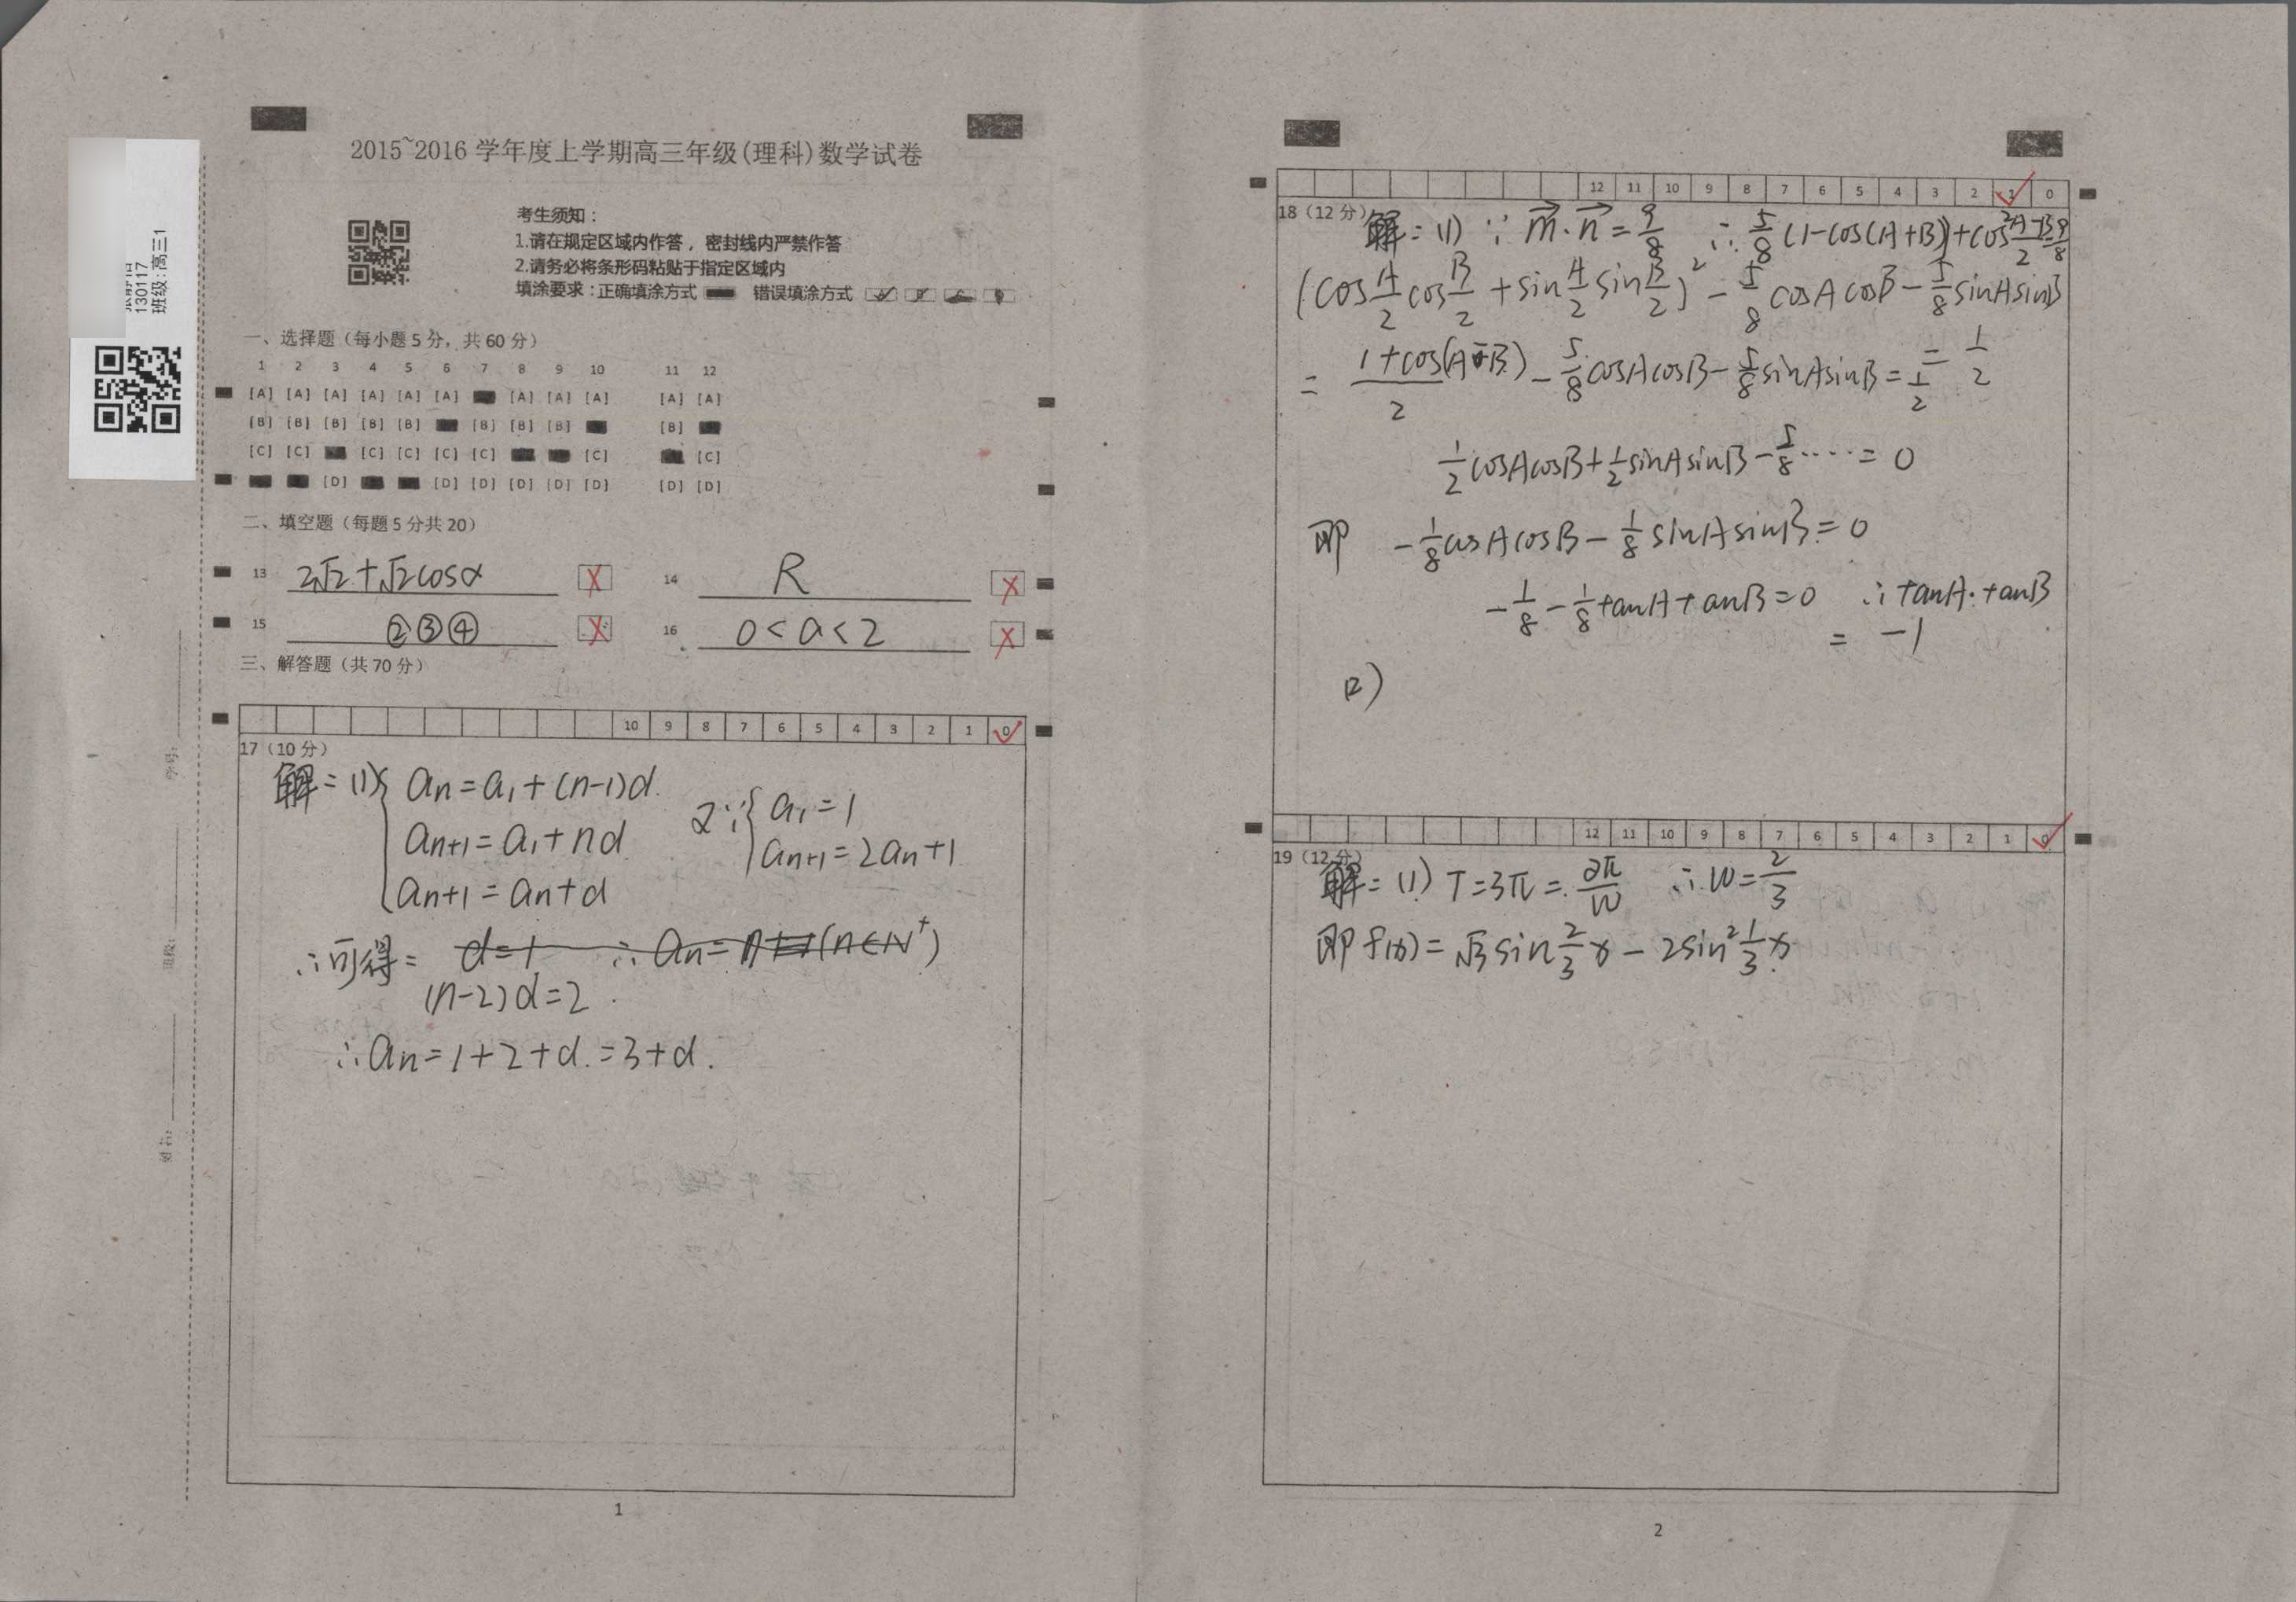 2015~2016 学年度上学期高三年级(理科)数学试卷
130117
班级:高三1
考生须知:
1.请在规定区域内作答,密封线内严禁作答
2.请务必将条形码粘贴于指定区域内
填涂要求:正确填涂方式 错误填涂方式
一、选择题(每小题5分,共60分)
1 2 3 4 5 6 7 8 9 10 11 12
[A] [A] [A] [A] [A] [A] [A] [A] [A] [A] [A]
[B] [B] [B] [B] [B] [B] [B] [B] [B]
[C] [C] [C] [C] [C] [C] [C] [C]
[D] [D] [D] [D] [D] [D] [D] [D]
二、填空题(每题5分共20)
13 2√2+√2cosα X 14 R X
15 ②③④ X 16 0<a<2 X
三、解答题(共70分)
10 9 8 7 6 5 4 3 2 1 0
17(10分)
解:(1) an=a1+(n-1)d
an+1=a1+nd
an+1=an+d
又∵ a1=1
an+1=2an+1
∴可得: d=1 ∴an=
(n-2)d=2
∴an=1+2+d=3+d.
学号:
班级:
姓名:
1
12 11 10 9 8 7 6 5 4 3 2 1 0
18(12分)
解:(1) ∵ m·n=9/8 ∴5/8(1-cos(A+B))+cos²(A-B)/2=9/8
(cosA/2cosB/2+sinA/2sinB/2)²-5/8cosAcosB-5/8sinAsinB
=1/2
=(1+cos(A-B))/2-5/8cosAcosB-5/8sinAsinB=1/2
1/2cosAcosB+1/2sinAsinB-5/8····=0
即 -1/8cosAcosB-1/8sinAsinB=0
-1/8-1/8tanAtanB=0 ∴tanA·tanB
=-1
(2)
12 11 10 9 8 7 6 5 4 3 2 1 0
19(12分)
解:(1) T=3π=2π/W ∴W=2/3
即f(x)=√3sin2/3x-2sin²1/3x
2